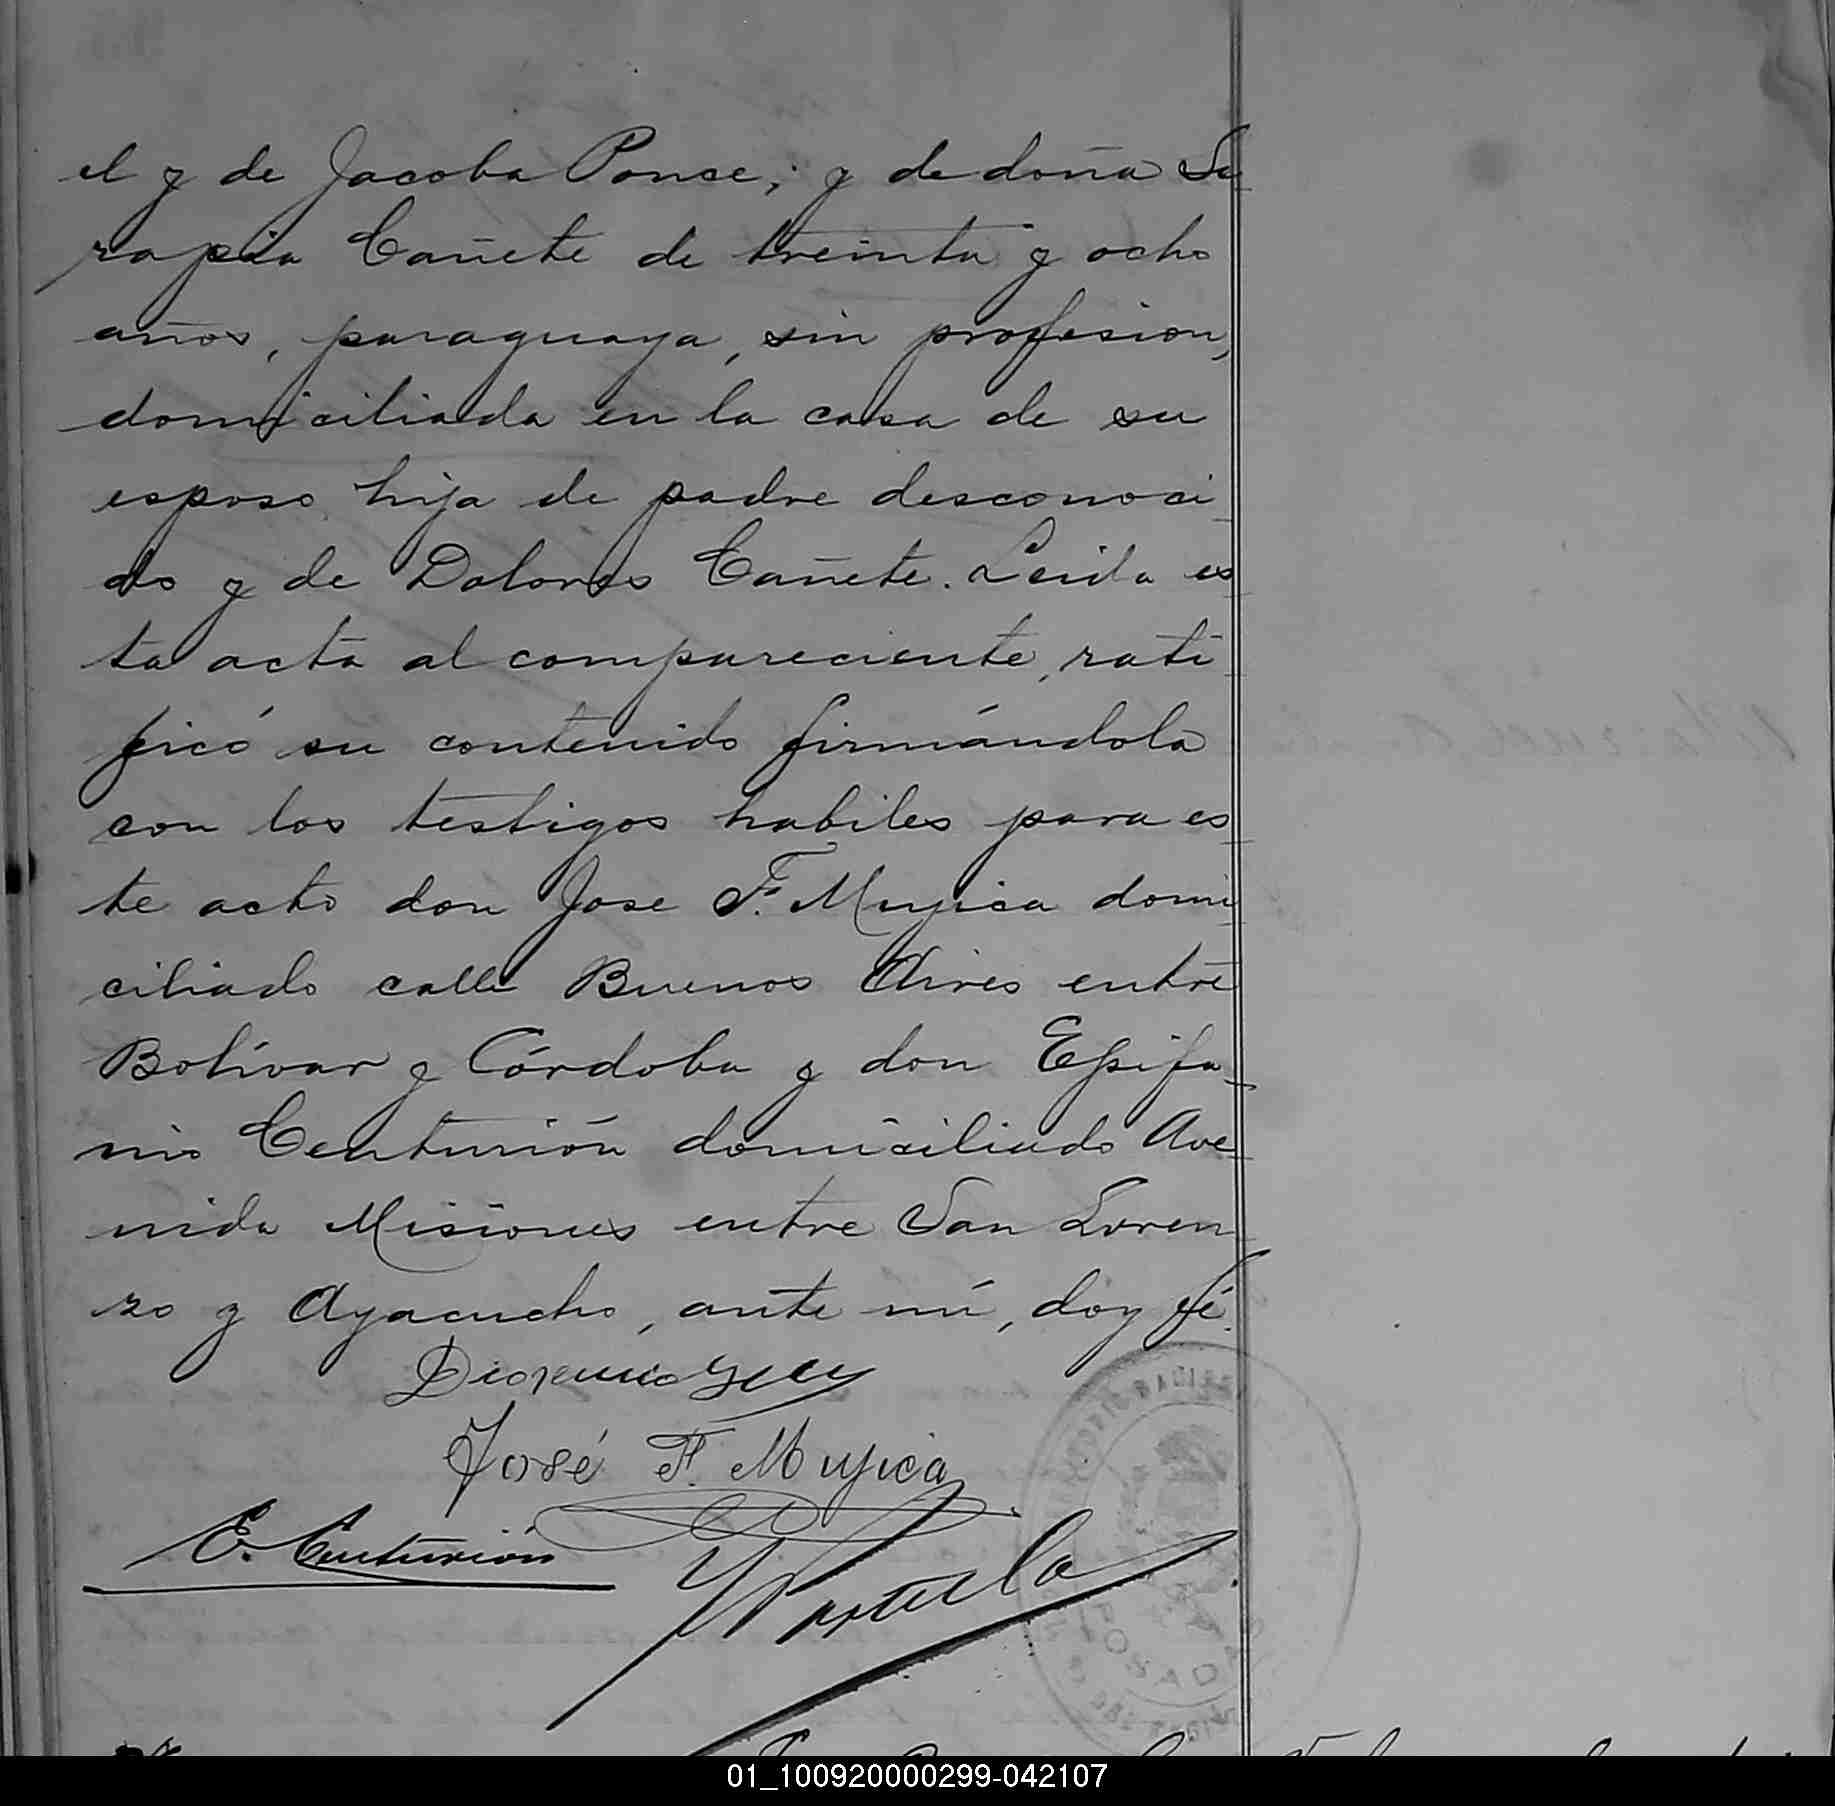 el y de Jacoba Ponce; y de doña Se
rapia Cañete de treinta y ocho
años, paraguaya, sin profesion,
domiciliada en la casa de su
esposo, hija de padre desconoci
do y de Dolores Cañete. Leida es
ta acta al compareciente, rati
ficó su contenido firmándola
con los testigos habiles para es
te acto don Jose F. Mujica domi
ciliado calle Buenos Aires entre
Bolívar y Córdoba y don Epifa
nio Centurión domiciliado Ave
nida Misiones entre San Loren
zo y Ayacucho, ante mí, doy fé.
José F. Mujica
E. Centurión
01_100920000299-042107